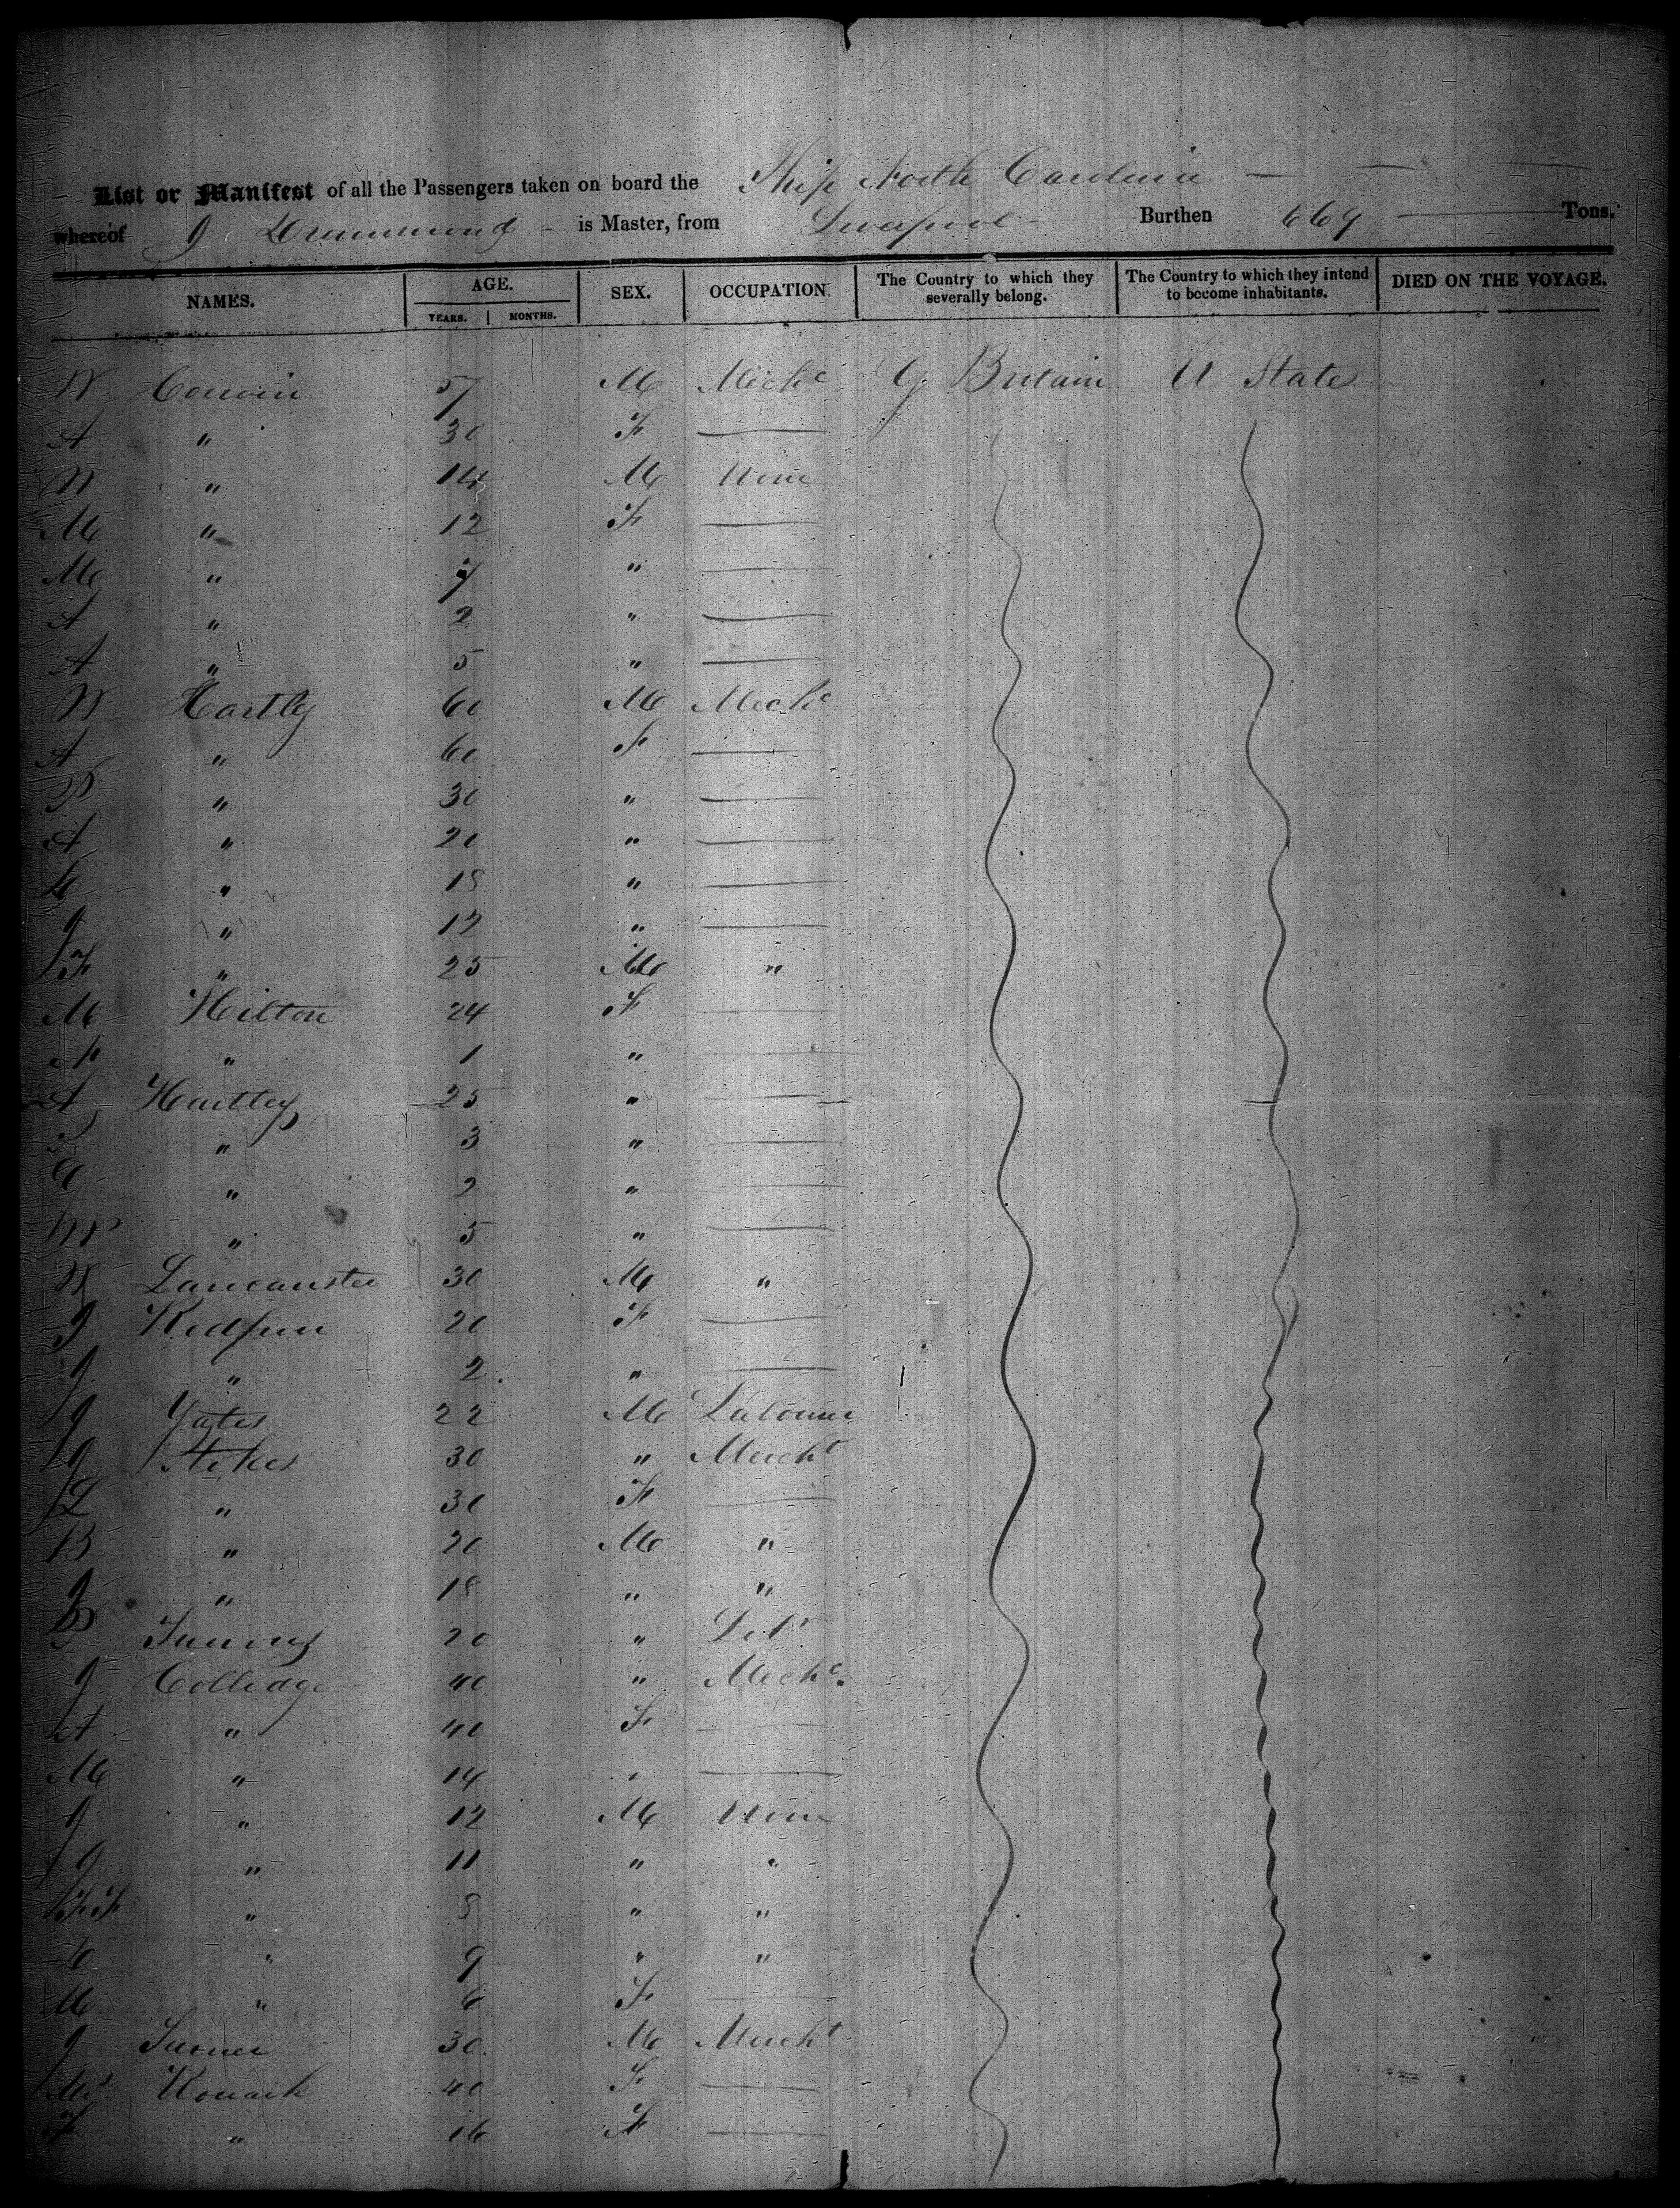 List or Manifest of all the Passengers taken on board the Ship North Carolina
whereof J Drummond is Master, from Liverpool Burthen 669 Tons.
NAMES. AGE. SEX. OCCUPATION The Country to which they severally belong. The Country to which they intend to become inhabitants. DIED ON THE VOYAGE.
YEARS. MONTHS.
W 57 M Mechc G Britain U State
A " 30 F
W " 14 M None
M " 12 F
M " 7 "
A " 2 "
A " 5 "
W Hartly 60 M Mechc
A " 60 F
" 30 "
A " 20 "
" 18 "
J " 12 "
F " 25 M "
M Hilton 24 F
" 1 "
A Hartley 25 "
" 3 "
" 2 "
" 5 "
W Lancanster 30 M "
J 20 F
J " 2 "
J Yates 22 M Labourer
J Stokes 30 " Mercht
" 30 F
B " 20 M "
J " 18 " "
20 " Labr
J Colledge 40 " Mechc
A " 40 F
M " 14 "
J " 12 M None
J " 11 " "
" 8 " "
" 9 " "
M " 6 F
J 30 M Mercht
40 F
F " 16 F